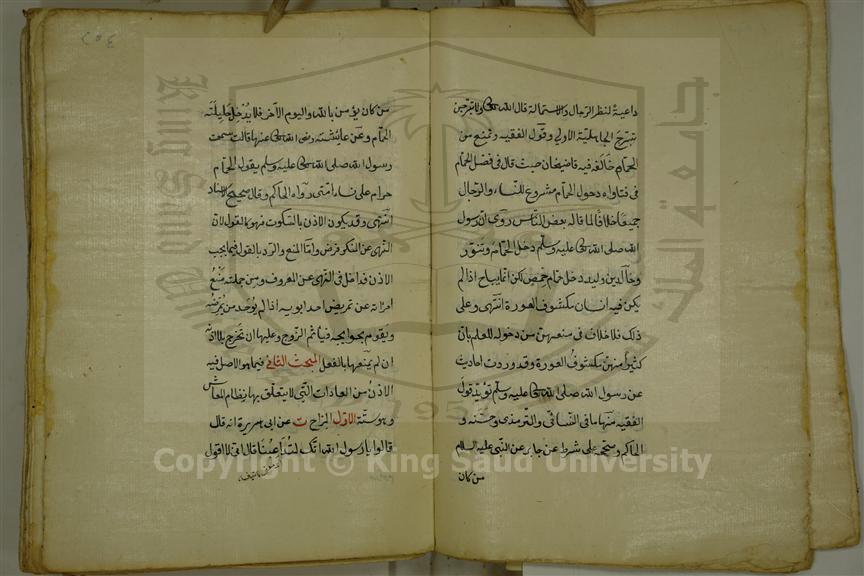 داعية لنظر الرجال والاستمالة قال الله تعالى ولا تبرجن
تبرج الجاهلية الاولى وقول الفقيه وتمنع من
الحمام خالفه فيه قاضيخان حيث قال في فصل الحمام
في فتاواه دخول الحمام مشروع للنساء والرجال
جميعا خلافا لما قاله بعض الناس روي ان رسول
الله صلى الله تعالى عليه وسلم دخل الحمام وتنور
وخالد بن وليد دخل حمام حمص لكن انما يباح اذا لم
يكن فيه انسان مكشوف العورة انتهى وعلى
ذلك فلا خلاف في منعهن من دخوله للعلم بان
كثيرا منهن مكشوف العورة وقد وردت احاديث
عن رسول الله صلى الله تعالى عليه وسلم تؤيد قول
الفقيه منها ما في النسائي والترمذي وحسنه و
الحاكم وصححه على شرط عن جابر عن النبي عليه السلام
من كان
من كان يؤمن بالله واليوم الآخر فلا يدخل حليلته
الحمام وعن عائشة رضى الله تعالى عنها قالت سمعت
رسول الله صلى الله تعالى عليه وسلم يقول الحمام
حرام على نساء امتى رواه الحاكم وقال صحيح الاسناد
انتهى وقد يكون الاذن بالسكوت فهو كالقول لان
النهى عن المنكر فرض واما المنع والرد بالقول فيما يجب
الاذن فداخل في النهى عن المعروف ومن جملته منع
امرأته عن تمريض احد ابويه اذا لم يوجد من يمرضه
ويقوم بحوايجه فيأثم الزوج وعليها ان تخرج بلا اذنه
ان لم يمنعها بالفعل المبحث الثاني فيما هو الاصل فيه
الاذن من العادات التي لا يتعلق بها نظام المعاش
وهو ستة الاول المزاح ت عن ابى هريرة انه قال
قالوا يا رسول الله انك لتداعبنا قال انى لا اقول
Copyright © King Saud University
King Saud University
جامعة الملك سعود
1957